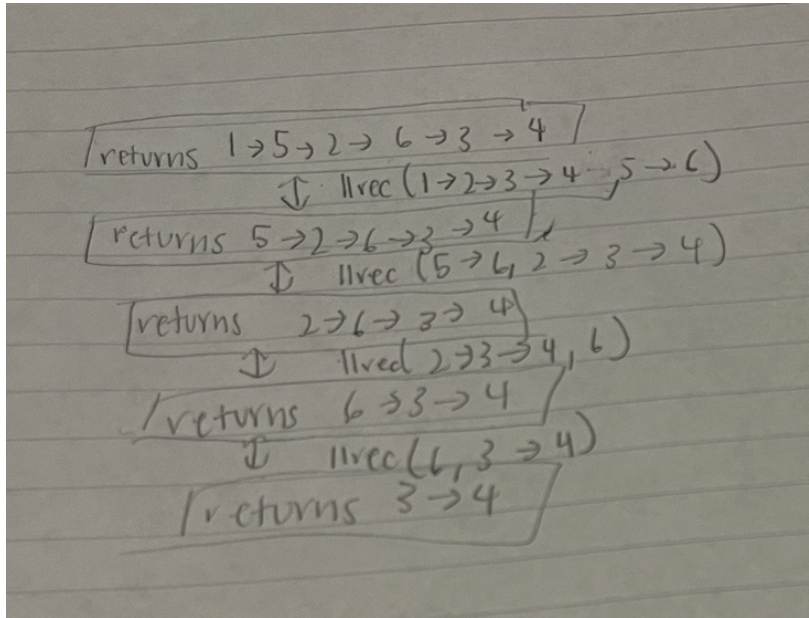 returns 1→5→2→6→3→4
↕ llrec(1→2→3→4, 5→6)
returns 5→2→6→3→4
↕ llrec(5→6, 2→3→4)
returns 2→6→3→4
↕ llrec(2→3→4, 6)
returns 6→3→4
↕ llrec(6, 3→4)
returns 3→4